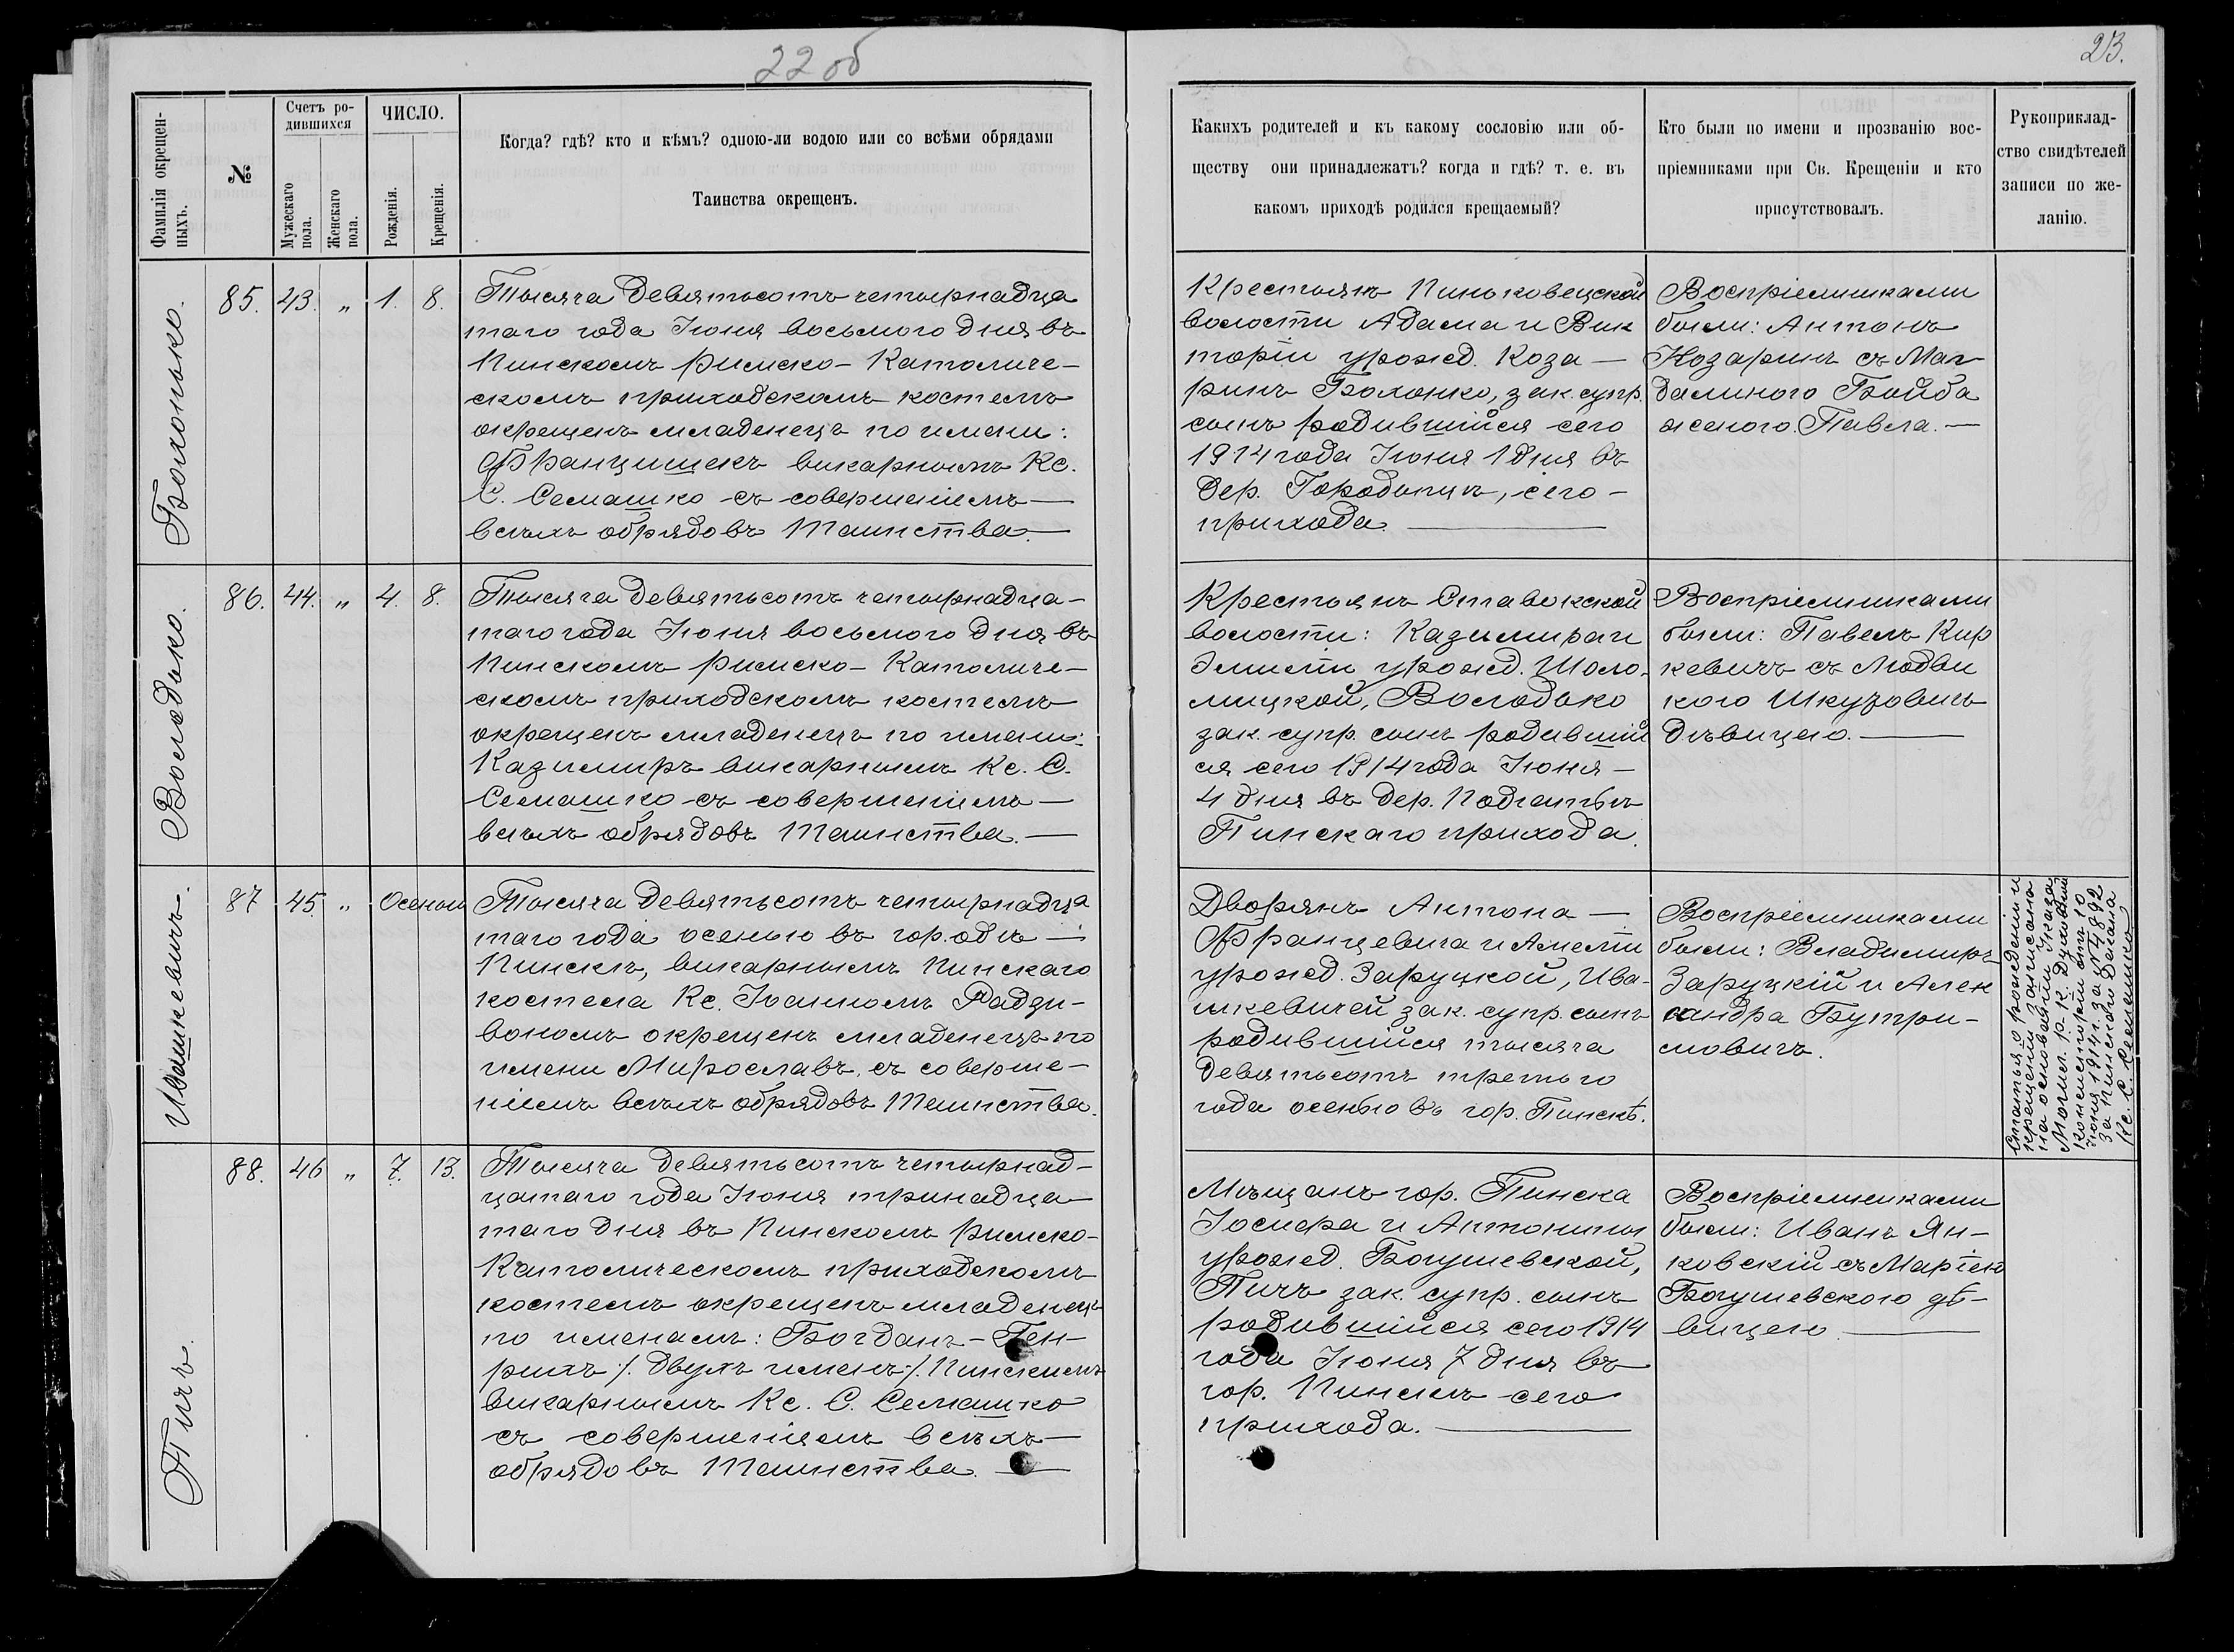 22 об
23.
Фамилія окрещен-
ныхъ.
№
Счетъ ро-
дившихся
Мужескаго
пола.
Женскаго
пола.
ЧИСЛО.
Рожденія.
Крещенія.
Когда? гдѣ? кто и кѣмъ? одною-ли водою или со всѣми обрядами
Таинства окрещенъ.
Какихъ родителей и къ какому сословію или об-
ществу они принадлежатъ? когда и гдѣ? т. е. въ
какомъ приходѣ родился крещаемый?
Кто были по имени и прозванію вос-
пріемниками при Св. Крещеніи и кто
присутствовалъ.
Рукоприклад-
ство свидѣтелей
записи по же-
ланію.
Болонько.
85. 43. „ 1. 8.
Тысяча девятьсотъ четырнадца
таго года Іюня восьмого дня въ
Пинскомъ римско-Католиче-
скомъ приходскомъ костелѣ
окрещенъ младенецъ по имени:
Францишекъ викарнымъ Кс.
С. Семашко съ совершеніемъ—
всѣхъ обрядовъ Таинства.—
Крестьянъ Пиньковецской
волости Адама и Вик
торіи урожд. Коза—
ринъ Болонко, зак. супр.
сынъ родившійся сего
1914 года Іюня 1 дня въ
дер. Городищѣ, сего-
прихода.—
Воспріемниками
были: Антонъ
Козаринъ съ Маг
далиною Бойба
женою Павла.—
Володько.
86. 44. „ 4. 8.
Тысяча девятьсотъ четырнадца-
таго года Іюня восьмого дня въ
Пинскомъ римско-Католиче-
скомъ приходскомъ костелѣ
окрещенъ младенецъ по имени:
Казимиръ викарнымъ Кс. С.
Семашко съ совершеніемъ—
всѣхъ обрядовъ Таинства.—
Крестьянъ Ставокской
волости: Казимира и
Эмиліи урожд. Шоло-
мицкой, Володько
зак. супр. сынъ родивший
ся сего 1914 года Іюня—
4 дня въ дер.
Пинскаго прихода.
Воспріемниками
были: Павелъ Кир
кевичъ съ Людви
кою Шкузовичъ
дѣвицею.—
Ивашкевичъ.
87 45. „ Осенью
Тысяча девятьсотъ четырнадца
таго года осенью въ гор.одѣ—
Пинскѣ, викарнымъ Пинскаго
костела Кс. Іоанномъ Радзи-
вономъ окрещенъ младенецъ по
имени Мирославъ, съ соверше-
ніемъ всѣхъ обрядовъ Таинства.
Дворянъ Антона—
Францевича и Амеліи
урожд. Заруцкой, Ива-
шкевичей зак. супр. сынъ
родившійся тысяча
девятьсотъ третьяго
года осенью въ гор. Пинскѣ.
Воспріемниками
были: Владимиръ
Заруцкій и Алек
сандра Бутри-
мовичъ.
Статья о рожденіи и
крещеніи записана
на основаніи Указа
Могил. Р. К. Духовной
Консисторіи отъ 10
іюня 1914 г. за № 4892
За Пинскаго Декана
Кс. С. Семашко
Пичъ.
88. 46 „ 7. 13.
Тысяча девятьсотъ четырнад-
цатаго года Іюня тринадца
таго дня въ Пинскомъ римско-
Католическомъ приходскомъ
костелѣ окрещенъ младенецъ
по именамъ: Богданъ-Ген-
рихъ /. двухъ именъ ./ Пинскимъ
викарнымъ Кс. С. Семашко
съ совершеніемъ всѣхъ—
обрядовъ Таинства.—
Мѣщанъ гор. Пинска
Іосифа и Антонины
урожд. Богушевской,
Пичъ зак. супр. сынъ
родившійся сего 1914
года Іюня 7 дня въ
гор. Пинскѣ сего
прихода.—
Воспріемниками
были: Иванъ Ян-
ковскій съ Маріею
Богушевскою дѣ-
вицею.—